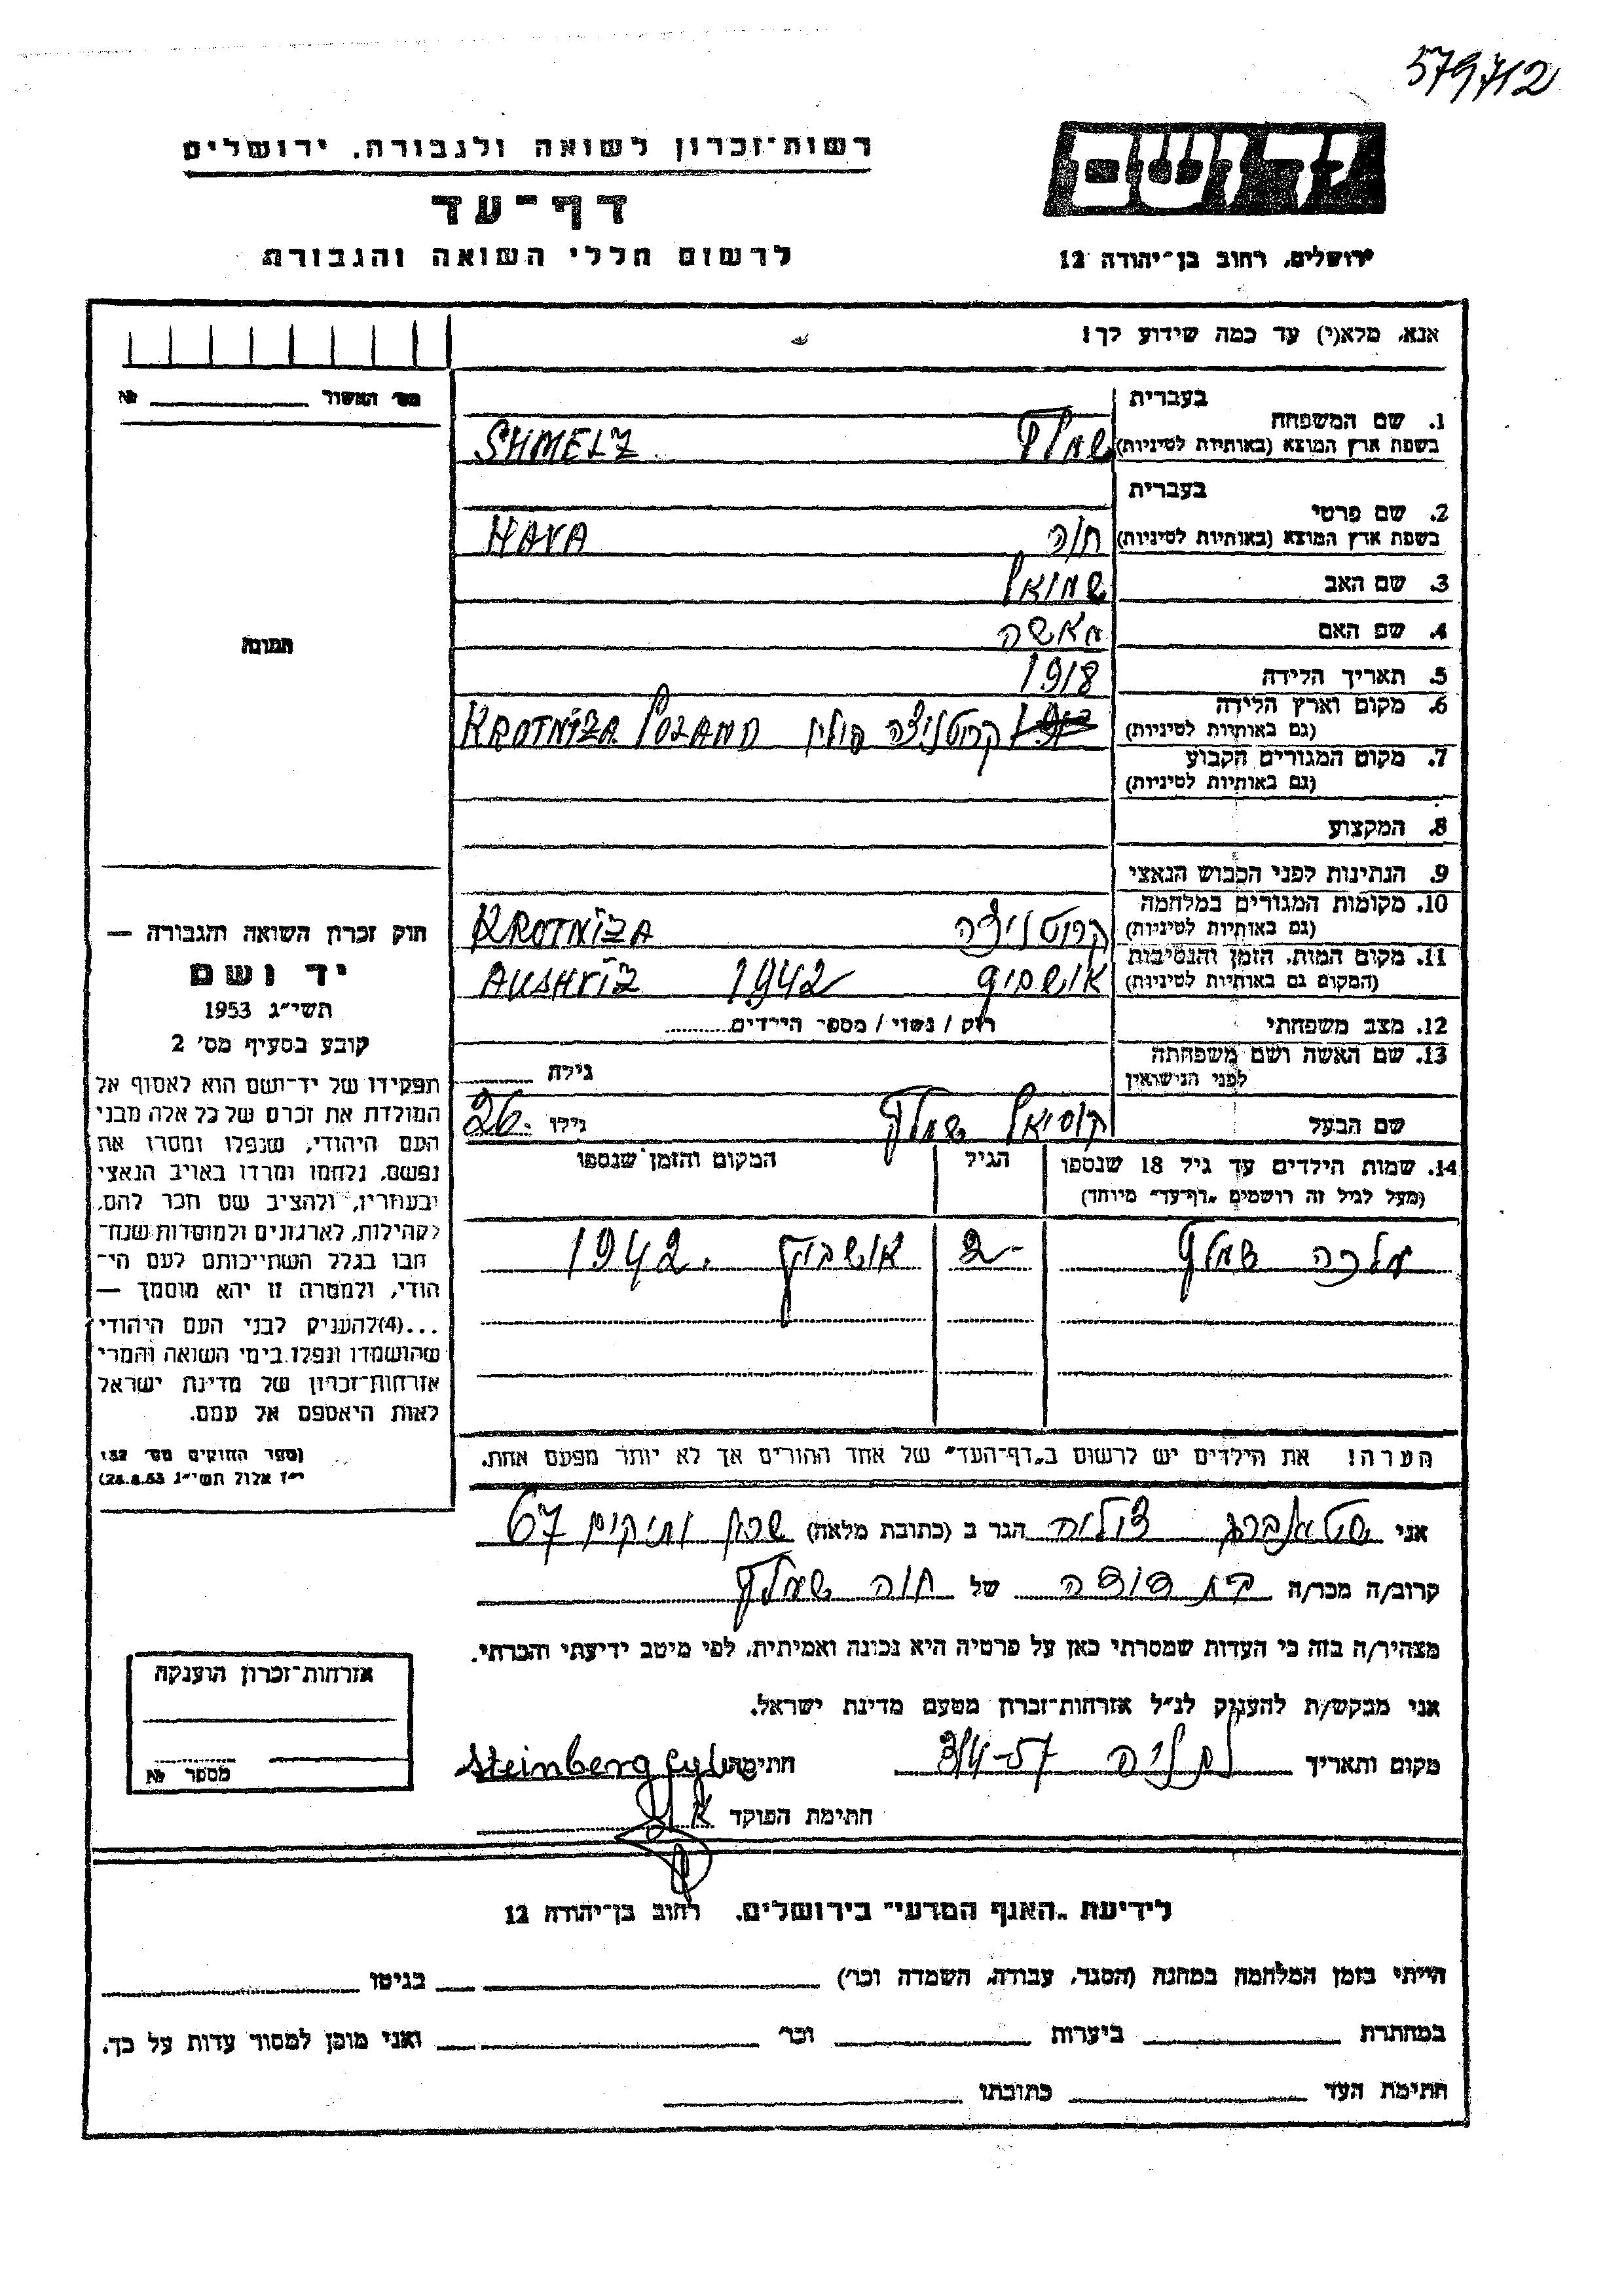 579712
ידושם
ירושלים, רחוב בן־יהודה 12
רשות־זכרון לשואה ולגבורה, ירושלים
דף־עד
לרשום חללי השואה והגבורה
אנא, מלא(י) עד כמה שידוע לך!
מס' האשור № 
1. שם המשפחה בעברית
בשפת ארץ המוצא (באותיות לטיניות) שמלץ SHMELZ
2. שם פרטי בעברית
בשפת ארץ המוצא (באותיות לטיניות) חוה HAVA
3. שם האב שמואל
4. שם האם מאשה
5. תאריך הלידה 1918
6. מקום וארץ הלידה
(גם באותיות לטיניות) קרוטניצה פולין KROTNIZA POLAND
7. מקום המגורים הקבוע
(גם באותיות לטיניות)
8. המקצוע
9. הנתינות לפני הכבוש הנאצי
10. מקומות המגורים במלחמה
(גם באותיות לטיניות) קרוטניצה KROTNIZA
11. מקום המות, הזמן והנסיבות
(המקום גם באותיות לטיניות) 1942 AUSHVIZ
12. מצב משפחתי רוק / נשוי / מספר הילדים
13. שם האשה ושם משפחתה
לפני הנישואין גילה
שם הבעל שמלץ גילו 26
14. שמות הילדים עד גיל 18 שנספו הגיל המקום והזמן שנספו
(מעל לגיל זה רושמים „דף־עד” מיוחד)
מלכה שמלץ 2 אושבוץ 1942
הערה! את הילדים יש לרשום ב„דף־העד” של אחד ההורים אך לא יותר מפעם אחת.
תמונה
חוק זכרון השואה והגבורה —
יד ושם
תשי"ג 1953
קובע בסעיף מס' 2
תפקידו של יד־ושם הוא לאסוף אל
המולדת את זכרם של כל אלה מבני
העם היהודי, שנפלו ומסרו את
נפשם, נלחמו ומרדו באויב הנאצי
ובעוזריו, ולהציב שם וזכר להם,
לקהילות, לארגונים ולמוסדות שנח־
רבו בגלל השתייכותם לעם הי־
הודי, ולמטרה זו יהא מוסמך —
...(4) להעניק לבני העם היהודי
שהושמדו ונפלו בימי השואה והמרי
אזרחות־זכרון של מדינת ישראל
לאות היאספם אל עמם.
(ספר החוקים מס' 132
י"ז אלול תשי"ג 28.8.53)
אני שטאנברג צילה הגר ב (כתובת מלאה) שכון ותיקים 67
קרוב/ה מכר/ה בת דודה של חוה שמלץ
מצהיר/ה בזה כי העדות שמסרתי כאן על פרטיה היא נכונה ואמיתית, לפי מיטב ידיעתי והכרתי.
אני מבקש/ת להעניק לנ"ל אזרחות־זכרון מטעם מדינת ישראל.
מקום ותאריך נתניה 3/4-57 חתימה Steinberg Cyla
חתימת הפוקד
אזרחות־זכרון הוענקה
מספר №
לידיעת „האגף המדעי” בירושלים, רחוב בן־יהודה 12
הייתי בזמן המלחמה במחנה (הסגר, עבודה, השמדה וכו') בגיטו
במחתרת ביערות וכו' ואני מוכן למסור עדות על כך.
חתימת העד כתובתו